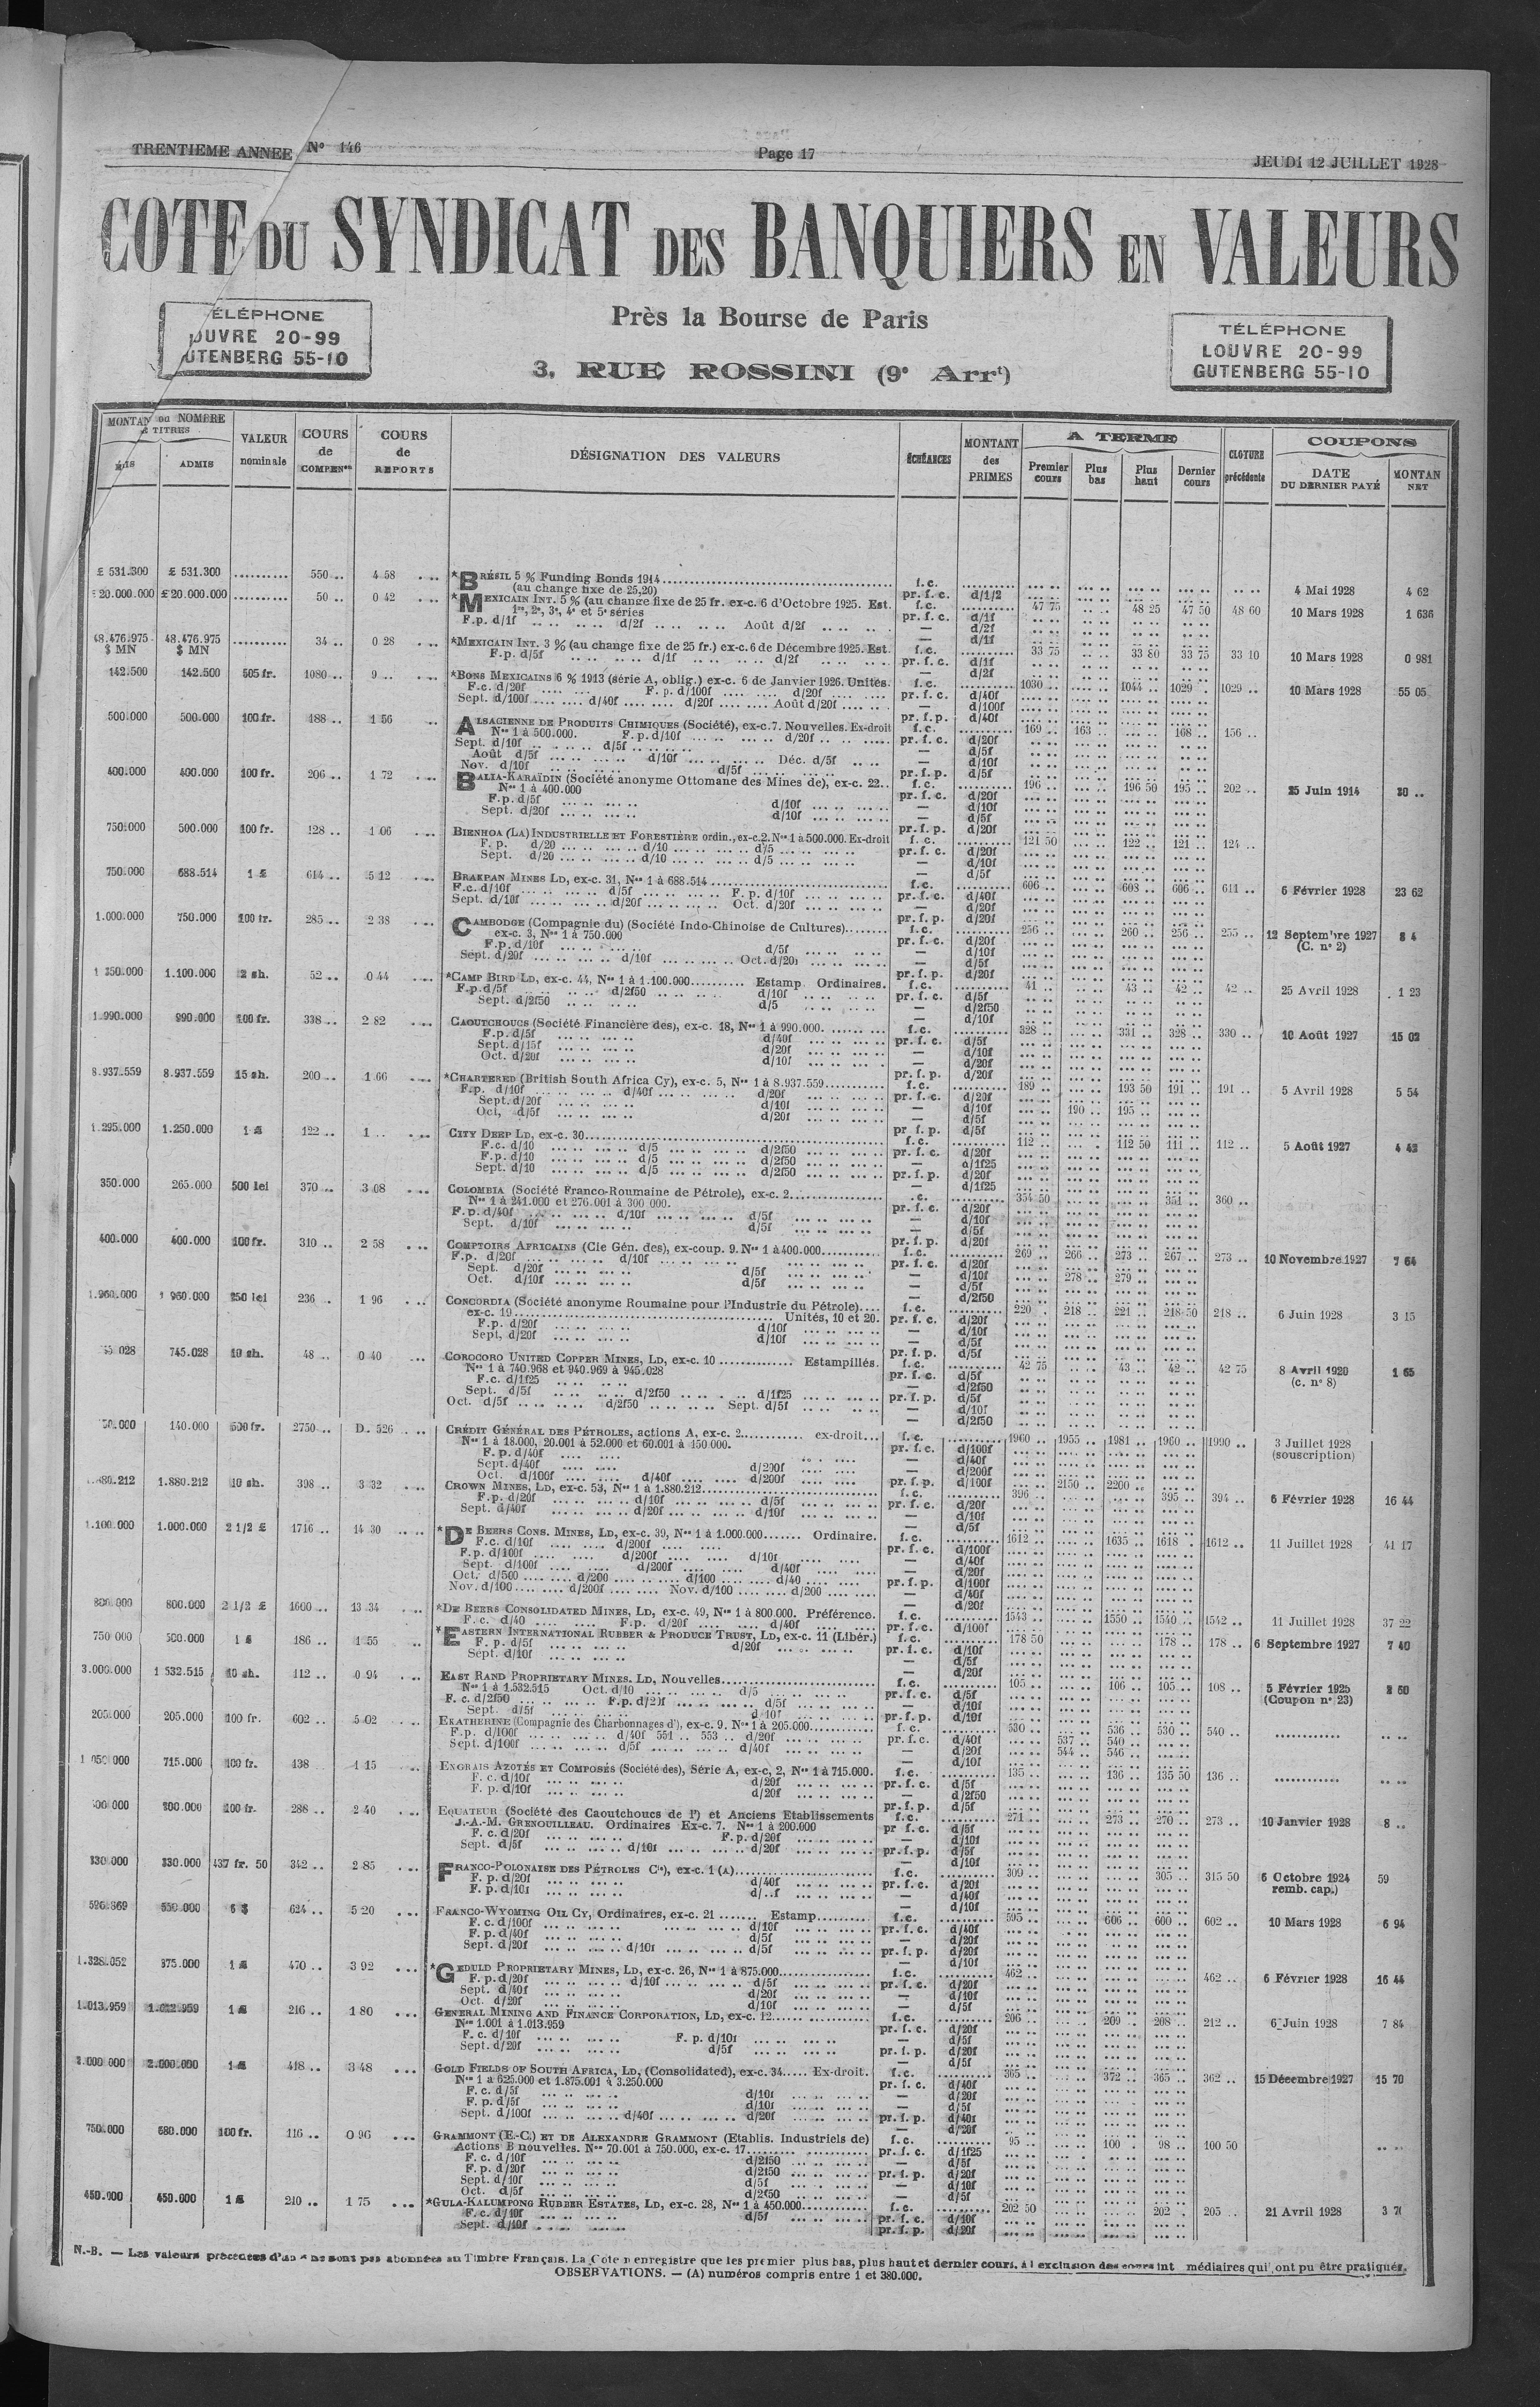 TRENTIEME ANNEE N° 146
Page 17
JEUDI 12 JUILLET 1928
COTE DU SYNDICAT DES BANQUIERS EN VALEURS
Près la Bourse de Paris
3, RUE ROSSINI (9e Arrt)
ÉLÉPHONE
OUVRE 20-99
UTENBERG 55-10
TÉLÉPHONE
LOUVRE 20-99
GUTENBERG 55-10
MONTAN ou NOMBRE TITRES ADMIS
VALEUR nominale
COURS de COMPENon
COURS de REPORTS
DÉSIGNATION DES VALEURS
ÉCHÉANCES
MONTANT des PRIMES
A TERME
Premier cours Plus bas Plus haut Dernier cours
CLOTURE précédente
COUPONS
DATE DU DERNIER PAYÉ
MONTAN NET
£ 531.300 £ 531.300 .......... 550 .. 4 58 .... *BRÉSIL 5 % Funding Bonds 1914 f.c. 4 Mai 1928 4 62
(au change fixe de 25,20) pr. f. c. d/1/2
20.000.000 £ 20.000.000 .......... 50 .. 0 42 .... *MEXICAIN INT. 5 % (au change fixe de 25 fr. ex-c. 6 d'Octobre 1925. Est. f.c. 47 75 48 25 47 50 48 60 10 Mars 1928 1 636
1re, 2e, 3e, 4e et 5e séries pr. f. c. d/1f
F.p. d/1f d/2f Août d/2f — d/2f
48.476.975 $ MN 48.476.975 $ MN .......... 34 .. 0 28 .... *MEXICAIN INT. 3 % (au change fixe de 25 fr.) ex-c. 6 de Décembre 1925. Est. f.c. 33 75 33 80 33 75 33 10 10 Mars 1928 0 981
F.p. d/5f d/1f d/2f pr. f. c. d/1f
142.500 142.500 505 fr. 1080 .. 9 .. *BONS MEXICAINS 6 % 1913 (série A, oblig.) ex-c. 6 de Janvier 1926. Unités. f.c. 1030 .. 1044 .. 1029 .. 1029 .. 10 Mars 1928 55 05
F.c. d/20f F. p. d/100f d/20f pr. f. c. d/40f
Sept. d/100f d/40f d/20f Août d/20f — d/100f
500.000 500.000 100 fr. 188 .. 1 56 ALSACIENNE DE PRODUITS CHIMIQUES (Société), ex-c. 7. Nouvelles. Ex-droit f.c. 169 .. 163 .. 168 .. 156 ..
Nos 1 à 500.000. F.p. d/10f d/20f pr. f. c. d/20f
Sept. d/10f d/5f — d/5f
Août d/5f d/10f Déc. d/5f — d/10f
Nov. d/10f d/5f pr. f. p. d/5f
400.000 400.000 100 fr. 206 .. 1 72 BALIA-KARAÏDIN (Société anonyme Ottomane des Mines de), ex-c. 22.. f.c. 196 .. 196 50 195 .. 202 .. 25 Juin 1914 30 ..
Nos 1 à 400.000 pr. f. c. d/20f
F.p. d/5f d/10f — d/10f
Sept. d/20f d/10f — d/5f
pr. f. p. d/20f
750.000 500.000 100 fr. 128 .. 1 06 BIENHOA (LA) INDUSTRIELLE ET FORESTIÈRE ordin., ex-c. 2. Nos 1 à 500.000. Ex-droit f. c. 121 50 122 .. 121 .. 124 ..
F. p. d/20 d/10 d/5 pr. f. c. d/20f
Sept. d/20 d/10 d/5 — d/10f
— d/5f
750.000 688.514 1 £ 614 .. 5 12 BRAKPAN MINES LD, ex-c. 31, Nos 1 à 688.514 f.c. 606 .. 608 .. 606 .. 611 .. 6 Février 1928 23 62
F.c. d/10f d/5f F. p. d/10f pr. f. c. d/40f
Sept. d/10f d/20f Oct. d/20f — d/20f
pr. f. p. d/20f
1.000.000 750.000 100 fr. 285 .. 2 38 CAMBODGE (Compagnie du) (Société Indo-Chinoise de Cultures) f.c. 256 .. 260 .. 256 .. 255 .. 12 Septembre 1927 8 4
ex-c. 3, Nos 1 à 750.000 pr. f. c. d/20f (C. n° 2)
F.p. d/10f d/5f — d/10f
Sept. d/20f d/10f Oct. d/20f — d/5f
pr. f. p. d/20f
1 350.000 1.100.000 2 sh. 52 .. 0 44 *CAMP BIRD LD, ex-c. 44, Nos 1 à 1.100.000 Estamp. Ordinaires. f.c. 41 .. 43 .. 42 .. 42 .. 25 Avril 1928 1 23
F.p. d/5f d/2f50 d/10f pr. f. c. d/5f
Sept. d/2f50 d/5 — d/2f50
— d/10f
1.990.000 990.000 100 fr. 338 .. 2 82 CAOUTCHOUCS (Société Financière des), ex-c. 18, Nos 1 à 990.000. f.c. 328 .. 331 .. 328 .. 330 .. 10 Août 1927 15 02
F.p. d/5f d/40f pr. f. c. d/5f
Sept. d/15f d/20f — d/10f
Oct. d/20f d/10f — d/20f
pr. f. p. d/20f
8.937.559 8.937.559 15 sh. 200 .. 1 66 *CHARTERED (British South Africa Cy), ex-c. 5, Nos 1 à 8.937.559 f.c. 189 .. 193 50 191 .. 191 .. 5 Avril 1928 5 54
F.p. d/10f d/40f d/20f pr. f. c. d/20f
Sept. d/20f d/10f — d/10f 190 .. 195 ..
Oct. d/5f d/20f — d/5f
pr f. p. d/5f
1.295.000 1.250.000 1 £ 122 .. 1 .. CITY DEEP LD, ex-c. 30 f.c. 112 .. 112 50 111 .. 112 .. 5 Août 1927 4 43
F.c. d/10 d/5 d/2f50 pr. f. c. d/20f
F.p. d/10 d/5 d/2f50 — d/1f25
Sept. d/10 d/5 d/2f50 pr. f. p. d/20f
— d/1f25
350.000 265.000 500 lei 370 .. 3 08 COLOMBIA (Société Franco-Roumaine de Pétrole), ex-c. 2 .c. 354 50 351 .. 360 ..
Nos 1 à 241.000 et 276.001 à 300 000. pr. f. c. d/20f
F.p. d/40f d/10f d/5f — d/10f
Sept. d/10f d/5f — d/5f
pr. f. p. d/20f
400.000 400.000 100 fr. 310 .. 2 58 COMPTOIRS AFRICAINS (Cie Gén. des), ex-coup. 9. Nos 1 à 400.000 f.c. 269 .. 266 .. 273 .. 267 .. 273 .. 10 Novembre 1927 7 64
F.p. d/20f d/10f pr. f. c. d/20f
Sept. d/20f d/5f — d/10f 278 .. 279 ..
Oct. d/10f d/5f — d/5f
— d/2f50
1.960.000 1 960.000 250 lei 236 .. 1 96 CONCORDIA (Société anonyme Roumaine pour l'Industrie du Pétrole) f.c. 220 .. 218 .. 221 .. 218 50 218 .. 6 Juin 1928 3 15
ex-c. 19 Unités, 10 et 20. pr. f. c. d/20f
F.p. d/20f d/10f — d/10f
Sept. d/20f d/10f — d/5f
pr. f. p. d/5f
745.028 10 sh. 48 .. 0 40 COROCORO UNITED COPPER MINES, LD, ex-c. 10 Estampillés. f.c. 42 75 43 .. 42 .. 42 75 8 Avril 1920 1 65
Nos 1 à 740.968 et 940.969 à 945.028 pr. f. c. d/5f (c. n° 8)
F.c. d/1f25 — d/2f50
Sept. d/5f d/2f50 d/1f25 pr. f. p. d/5f
Oct. d/5f d/2f50 Sept. d/5f — d/10f
— d/2f50
140.000 500 fr. 2750 .. D. 526 CRÉDIT GÉNÉRAL DES PÉTROLES, actions A, ex-c. 2 ex-droit... f.c. 1960 .. 1955 .. 1981 .. 1960 .. 1990 .. 3 Juillet 1928
Nos 1 à 18.000, 20.001 à 52.000 et 60.001 à 150.000. pr. f. c. d/100f (souscription)
F. p. d/40f — d/40f
Sept. d/40f d/200f — d/200f
Oct. d/100f d/40f d/200f pr. f. p. d/100f 2150 .. 2200 ..
1.880.212 10 sh. 398 .. 3 32 CROWN MINES, LD, ex-c. 53, Nos 1 à 1.880.212 f.c. 396 .. 395 .. 394 .. 6 Février 1928 16 44
F.p. d/20f d/10f d/5f pr. f. c. d/20f
Sept. d/40f d/20f d/10f — d/10f
— d/5f
1.100.000 1.000.000 2 1/2 £ 1716 .. 14 30 *DE BEERS CONS. MINES, LD, ex-c. 39, Nos 1 à 1.000.000 Ordinaire. f.c. 1612 .. 1635 .. 1618 .. 1612 .. 11 Juillet 1928 41 17
F.c. d/10f d/200f pr. f. c. d/100f
F.p. d/100f d/200f d/10f — d/40f
Sept. d/100f d/200f d/40f — d/20f
Oct. d/500 d/200 d/100 d/40 pr. f. p. d/100f
Nov. d/100 d/200f Nov. d/100 d/200 — d/40f
— d/20f
800.000 800.000 2 1/2 £ 1600 .. 13 34 *DE BEERS CONSOLIDATED MINES, LD, ex-c. 49, Nos 1 à 800.000. Préférence. f.c. 1543 .. 1550 .. 1540 .. 1542 .. 11 Juillet 1928 37 22
F.c. d/40 F.p. d/20f d/40f pr. f. c. d/100f
750 000 500.000 1 £ 186 .. 1 55 *EASTERN INTERNATIONAL RUBBER & PRODUCE TRUST, LD, ex-c. 11 (Libér.) f.c. 178 50 178 .. 178 .. 6 Septembre 1927 7 40
F. p. d/5f d/20f pr. f. c. d/10f
Sept. d/10f — d/5f
— d/20f
3.000.000 1 532.515 10 sh. 112 .. 0 94 EAST RAND PROPRIETARY MINES. LD, Nouvelles f.c. 105 .. 106 .. 105 .. 108 .. 5 Février 1925 2 60
Nos 1 à 1.532.515 Oct. d/10 d/5 pr. f. c. d/5f (Coupon n° 23)
F. c. d/2f50 F.p. d/2)f d/5f — d/10f
Sept. d/5f d/10f pr. f. p. d/10f
205.000 205.000 100 fr. 602 .. 5 02 EKATHERINE (Compagnie des Charbonnages d'), ex-c. 9. Nos 1 à 205.000 f.c. 530 .. 536 .. 530 .. 540 ..
F.p. d/100f d/40f 551 .. 553 .. d/20f pr. f. c. d/40f 537 .. 540 ..
Sept. d/100f d/5f d/40f — d/20f 544 .. 546 ..
— d/10f
1 050 000 715.000 100 fr. 138 .. 1 15 ENGRAIS AZOTÉS ET COMPOSÉS (Société des), Série A, ex-c, 2, Nos 1 à 715.000. f.c. 135 .. 136 .. 135 50 136 ..
F. c. d/10f d/20f pr. f. c. d/5f
F. p. d/10f d/20f — d/2f50
pr. f. p. d/5f
200.000 100 fr. 288 .. 2 40 EQUATEUR (Société des Caoutchoucs de l') et Anciens Etablissements f.c. 271 .. 273 .. 270 .. 273 .. 10 Janvier 1928 8 ..
J.-A.-M. GRENOUILLEAU. Ordinaires Ex-c. 7. Nos 1 à 200.000 pr f. c. d/5f
F. c. d/20f F.p. d/20f — d/10f
Sept. d/5f d/10f d/20f pr. f. p. d/5f
— d/10f
330.000 330.000 437 fr. 50 342 .. 2 85 FRANCO-POLONAISE DES PÉTROLES Cie), ex-c. 1 (A) f.c. 309 .. 305 .. 315 50 6 Octobre 1924 59
F. p. d/20f d/40f pr. f. c. d/20f remb. cap.)
F. p. d/10f d/..f — d/40f
— d/10f
596.869 550.000 6 $ 624 .. 5 20 FRANCO-WYOMING OIL CY, Ordinaires, ex-c. 21 Estamp. f.c. 595 .. 606 .. 600 .. 602 .. 10 Mars 1928 6 94
F. c. d/100f d/10f pr. f. c. d/40f
F. p. d/40f d/5f — d/20f
Sept. d/20f d/10f d/5f pr. f. p. d/20f
— d/10f
1.328.052 875.000 1 £ 470 .. 3 92 *GEDULD PROPRIETARY MINES, LD, ex-c. 26, Nos 1 à 875.000 f.c. 462 .. 462 .. 6 Février 1928 16 44
F. p. d/20f d/10f d/5f pr. f. c. d/20f
Sept. d/40f d/20f — d/10f
Oct. d/20f d/10f — d/5f
1.013.959 1.012.959 1 £ 216 .. 1 80 GENERAL MINING AND FINANCE CORPORATION, LD, ex-c. 12 f.c. 206 .. 209 .. 208 .. 212 .. 6 Juin 1928 7 84
Nos 1.001 à 1.013.959 pr. f. c. d/20f
F. c. d/10f F. p. d/10f — d/5f
Sept. d/20f d/5f pr. f. p. d/20f
— d/5f
2.000.000 2.000.000 1 £ 418 .. 3 48 GOLD FIELDS OF SOUTH AFRICA, LD, (Consolidated), ex-c. 34 Ex-droit. f.c. 365 .. 372 .. 365 .. 362 .. 15 Décembre 1927 15 70
Nos 1 à 625.000 et 1.875.001 à 3.250.000 pr. f. c. d/40f
F. c. d/5f d/10f — d/20f
F. p. d/5f d/10f — d/5f
Sept. d/100f d/40f d/20f pr. f. p. d/40f
— d/20f
750.000 680.000 100 fr. 116 .. 0 96 GRAMMONT (E.-C.) ET DE ALEXANDRE GRAMMONT (Etablis. Industriels de) f.c. 95 .. 100 .. 98 .. 100 50
Actions B nouvelles. Nos 70.001 à 750.000, ex-c. 17 pr. f. c. d/1f25
F. c. d/10f d/2f50 — d/5f
F. p. d/20f d/2f50 pr. f. p. d/20f
Sept. d/10f d/5f — d/10f
Oct. d/5f d/2f50 — d/5f
450.000 450.000 1 £ 210 .. 1 75 *GULA-KALUMPONG RUBBER ESTATES, LD, ex-c. 28, Nos 1 à 450.000 f.c. 202 50 202 .. 205 .. 21 Avril 1928
F. c. d/10f d/5f pr. f. c. d/10f
Sept. d/10f pr. f. p. d/20f
N.-B. — Les valeurs précédées d'un * ne sont pas abonnées au Timbre Français. La Cote n enregistre que les premier plus bas, plus haut et dernier cours, à l exclusion des cours int médiaires qui ont pu être pratiqués.
OBSERVATIONS. — (A) numéros compris entre 1 et 380.000.